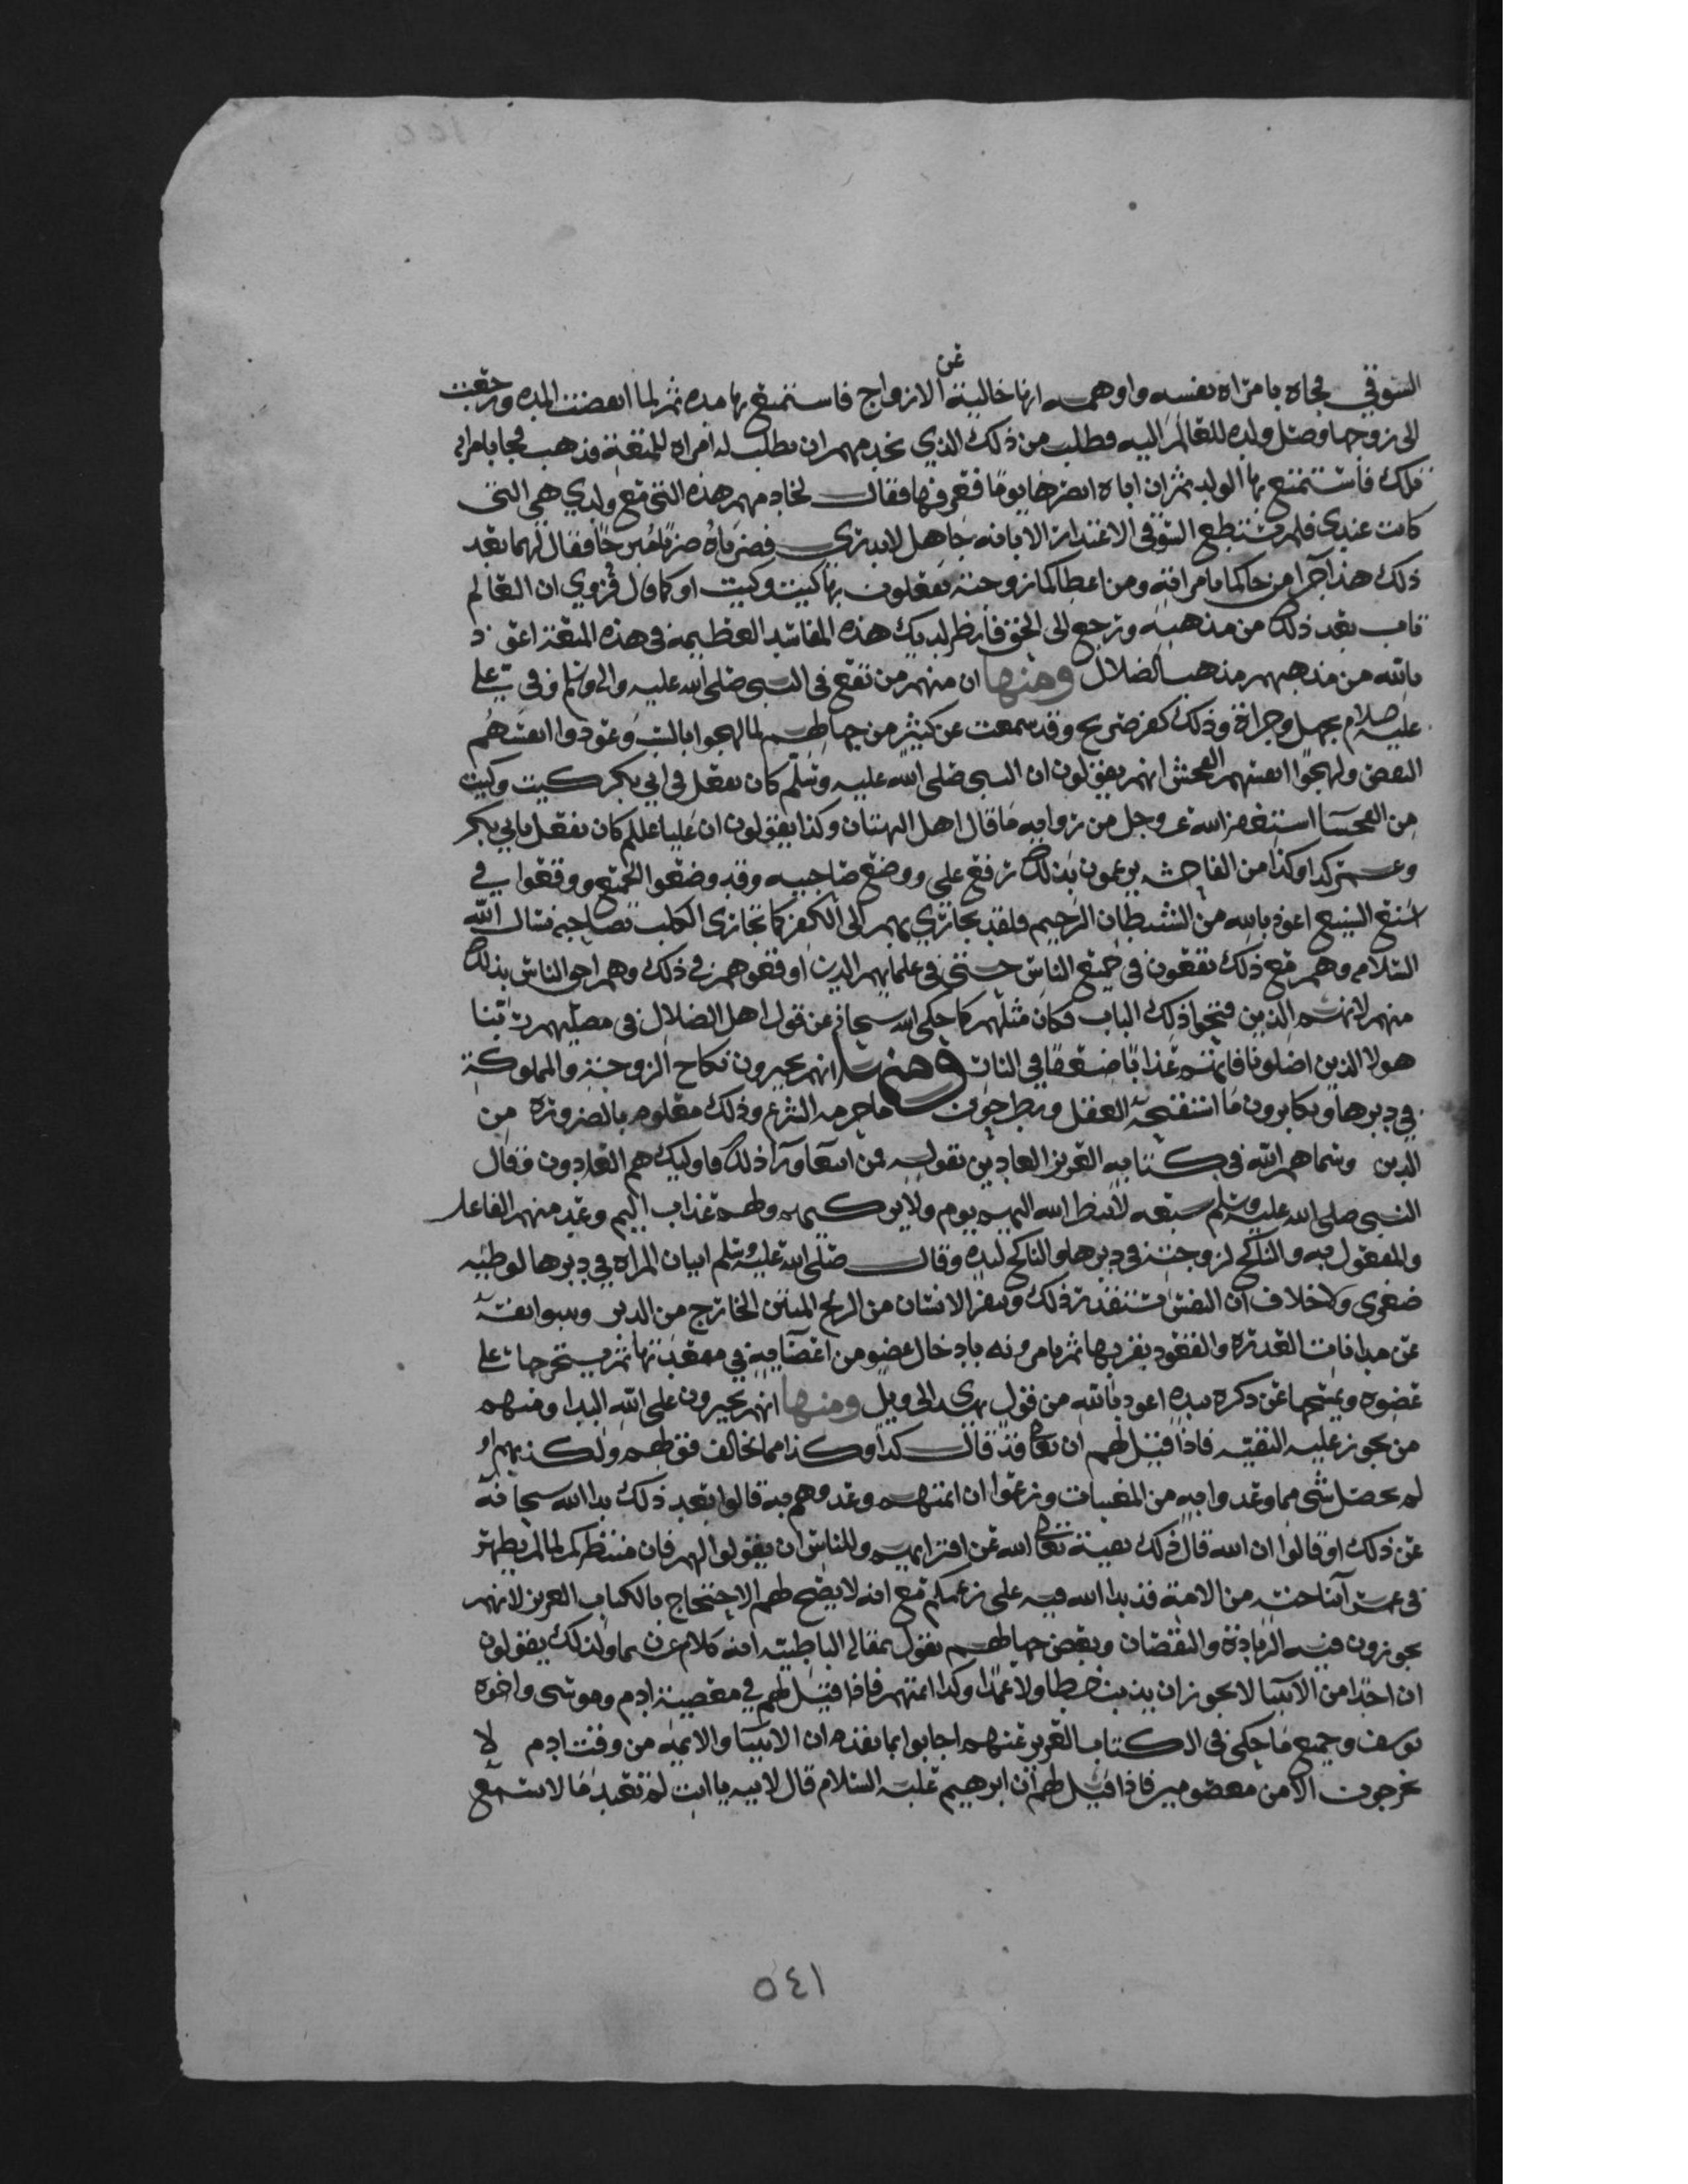 السوقي فجاه بامراه نفسه واوهمه انها خالية عن الازواج فاستمتع بها مده ثم لما انقضت المده ورجعت
الى زوجها وصل ولده للعالم اليه فطلب من ذلك الذي يخدمهم ان يطلب له امراه للمتعة فذهب فجا بامراة
فاستمتع بها الولد ثم ان اباه ابصرها يوما فعرفها فقال لخادمهم هذه التي مع ولدي هي التي
كانت عندي فلم يستطع السوقي الاعتذار الا بانه جاهل لا يدري فضرباه ضربا مبرحا فقال لهما بعد
ذلك هذا جزا من جاكما بامراته ومن اعطاكما زوجته تفعلون بها كيت وكيت او كما قال فروي ان العالم
تاب بعد ذلك من مذهبه ورجع الى الحق فانظر لديك هذه المفاسد العظيمة في هذه المتعة اعوذ
بالله من مذهبهم مذهب الضلال ومنها ان منهم من يقع في النبي صلى الله عليه واله وسلم وفي علي
عليه السلام بجهل وجراة وذلك كفر صريح وقد سمعت عن كثير من جهالهم لما لهجوا بالسب وعودوا انفسهم
البغض ولهجوا انفسهم الفحش انهم يقولون ان النبي صلى الله عليه وسلم كان يفعل في ابي بكر كيت وكيت
من الفحشا استغفر الله عز وجل من روايه ما قال اهل البهتان وكذا يقولون ان عليا علم كان يفعل بابي بكر
وعمر كذا وكذا من الفاحشه يزعمون بذلك رفع علي ووضع صاحبيه وقد وضعوا الجميع ووقعوا في
اشنع الشنيع اعوذ بالله من الشيطان الرجيم فلقد تجارى بهم الى الكفر كما تجارى الكلب بصاحبه نسال الله
السلام وهم مع ذلك يقعون في جميع الناس حتى في علمايهم الذين اوقعوهم في ذلك وهم احق الناس بذلك
منهم لانهم الذين فتحوا ذلك الباب فكان مثلهم كما حكى الله سبحانه عن قول اهل الضلال في مضليهم ربنا
هولا الذين اضلونا فاتهم عذابا ضعفا في النار ومنها انهم يجيزون نكاح الزوجة والمملوكة
في دبرها ويكابرون ما استقبحه العقل ويطرحون ما حرمه الشرع وذلك معلوم بالضرورة من
الدين وسماهم الله في كتابه العزيز العادين بقوله فمن ابتغا ورا ذلك فاوليك هم العادون وقال
النبي صلى الله عليه وسلم سبعه لا ينظر الله اليهم يوم ولا يزكيهم ولهم عذاب اليم وعد منهم الفاعل
والمفعول به والناكح لزوجته في دبرها والناكح ليده وقال صلى الله عليه وسلم اتيان المراه في دبرها لوطيه
صغرى ولا خلاف ان النفس تستقذر ذلك وينفر الانسان من الريح المنتن الخارج من الدبر
عن مدافات القذرة والقعود بقربها ثم يامرونه بادخال عضو من اعضايه في مقعدتها ثم يستخرجها على
عضوه ويمسحها عن ذكره بيده اعوذ بالله من قول يهدي الى ويل ومنها انهم يجيزون على الله البدا ومنهم
من يجوز عليه التقيه فاذا قيل لهم ان تعالى قد قال كذا وكذا مما يخالف قولهم ولكذبهم او
لم يحصل شي مما وعدوا به من المغيبات وزعموا ان ايمتهم وعدوهم به قالوا بعد ذلك بدا الله سبحانه
عن ذلك او قالوا ان الله قال ذلك تقية تعالى الله عن افترايهم وللناس ان يقولوا لهم فان منتظركم لما لم يظهر
في من الامة قد بدا الله فيه على زعمكم مع انه لا يصح لهم الاحتجاج بالكتاب العزيز لانهم
يجوزون فيه الزيادة والنقصان وبعض جهالهم يقول بمقال الباطنيه انه كلام ولذلك يقولون
ان احدا من الانبيا لا يجوز ان يذنب خطا ولا عمدا وكذا ايمتهم فاذا قيل لهم في معصية ادم وموسى واخوه
يوسف وجميع ما حكى في الكتاب العزيز عنهم اجابوا بما تقدم ان الانبيا والايمه من وقت ادم لا
يخرجون الا من معصومين فاذا قيل لهم ان ابرهيم عليه السلام قال لابيه يا ابت لم تعبد ما لا يسمع
٥٤١